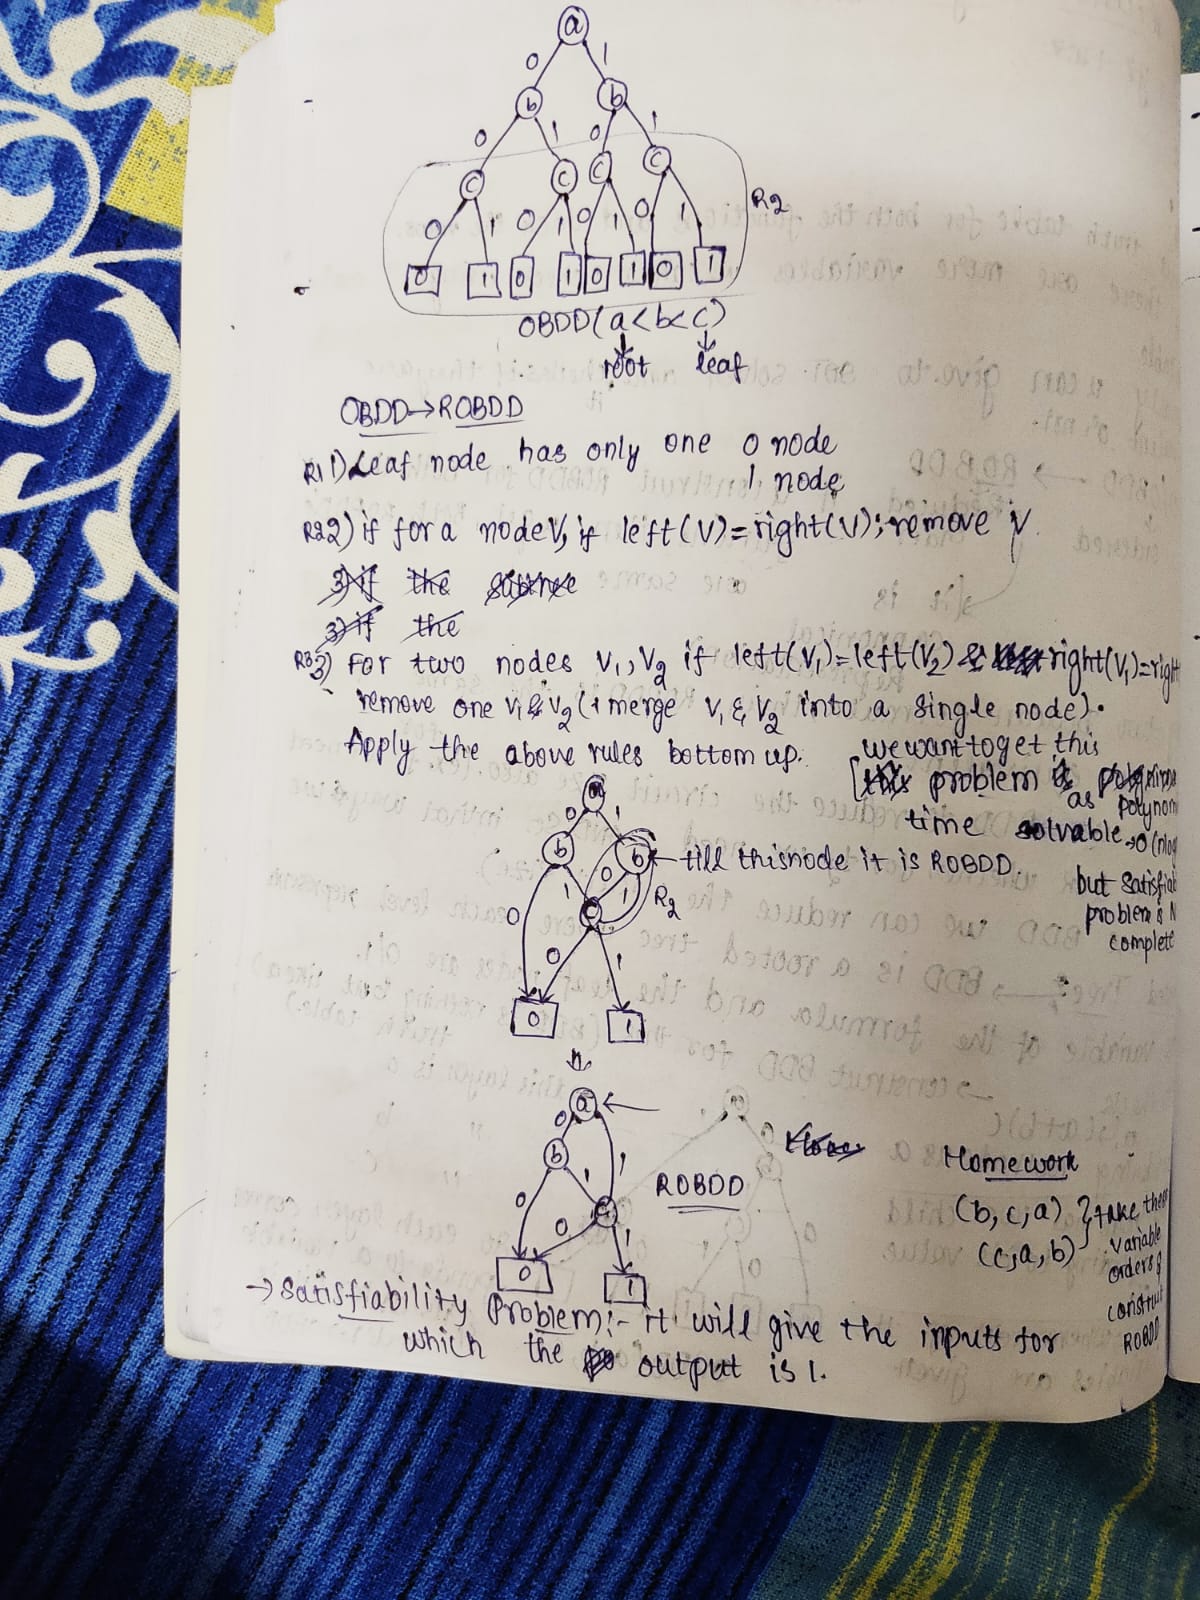 a
0 1
b b
0 1 0 1
c c c c
0 1 0 1 0 1 0 1 R2
0 1 0 1 0 1 0 1
OBDD(a<b<c)
root leaf
OBDD→ROBDD
R1 1) Leaf node has only one 0 node
1 node
R2 2) if for a node V, if left(V)=right(V); remove V.
3) if the
3) if the
R3 3) For two nodes V1, V2 if left(V1)=left(V2) & right(V1)=right
remove one V1 & V2 (& merge V1 & V2 into a single node).
Apply the above rules bottom up.
we want to get this
[this problem as
polynom
time solvable →O(nlog
but satisfiab
problem is N
complete
a
0 1
b b ← till this node it is ROBDD.
0 1 0 1 R2
c
0 1
0 1
a ←
0 1
b
0 1
c
0 1
0 1
ROBDD
Homework
(b, c, a)
(c, a, b)
} take these
variable
orders &
construct
ROBDD
→ Satisfiability Problem:- it will give the inputs for
which the output is 1.